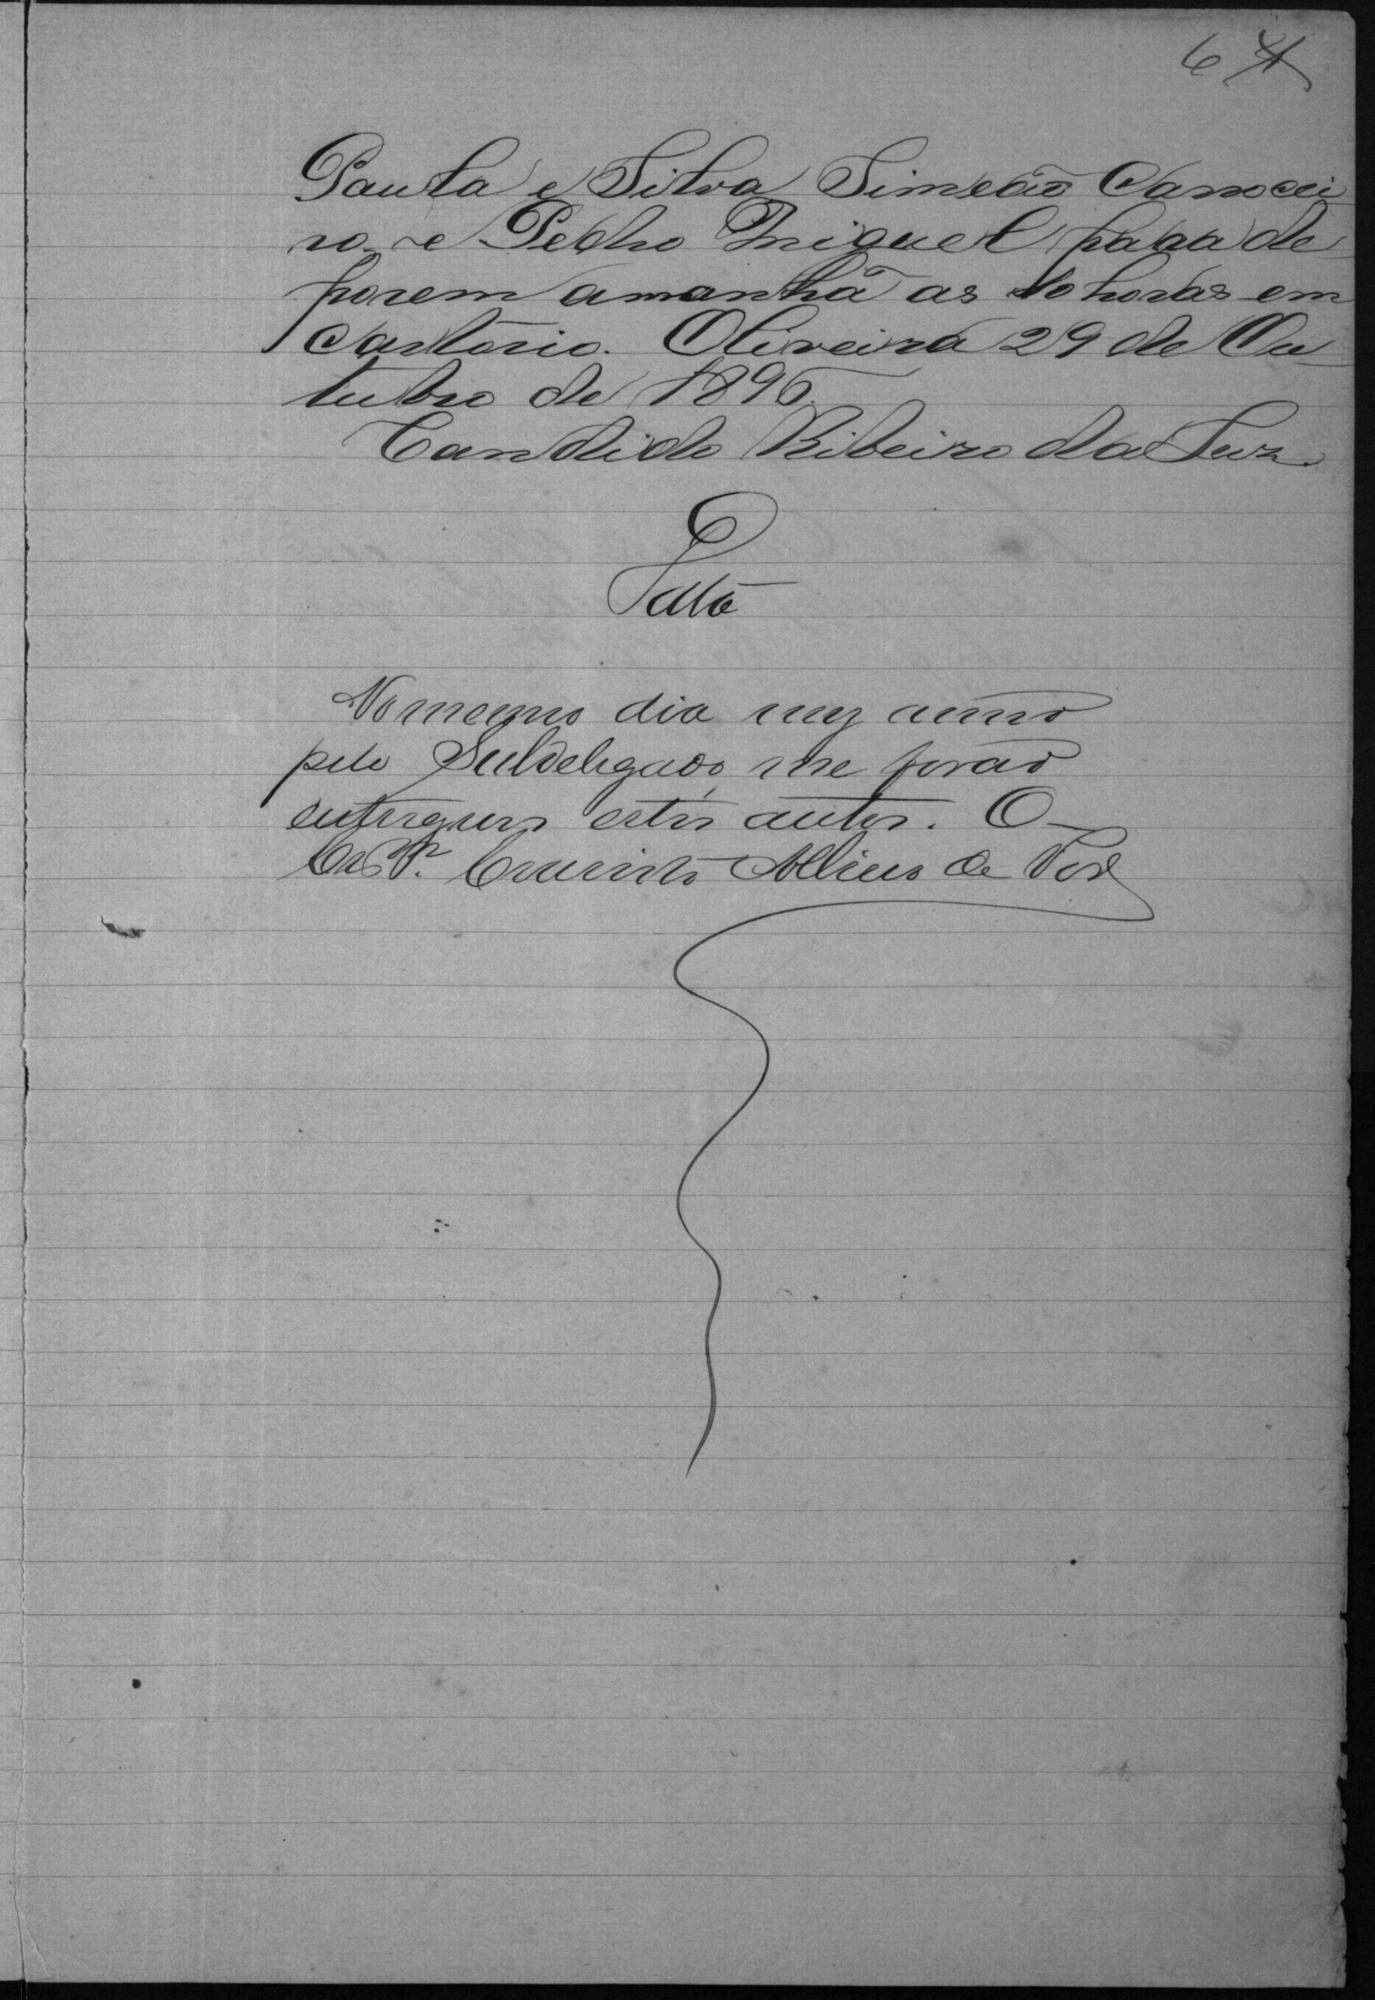 6
Paula e Silva Simeão Carrocei
ro, e Pedro Miguel para de
porem amanhã as 10 horas em
Cartorio. Oliveira 29 de Ou
tubro de 1896.
Candido Ribeiro da Luz
Data
No mesmo dia mez anno
pelo Subdelegado me forão
entregues estes autos. O
Escrm. de